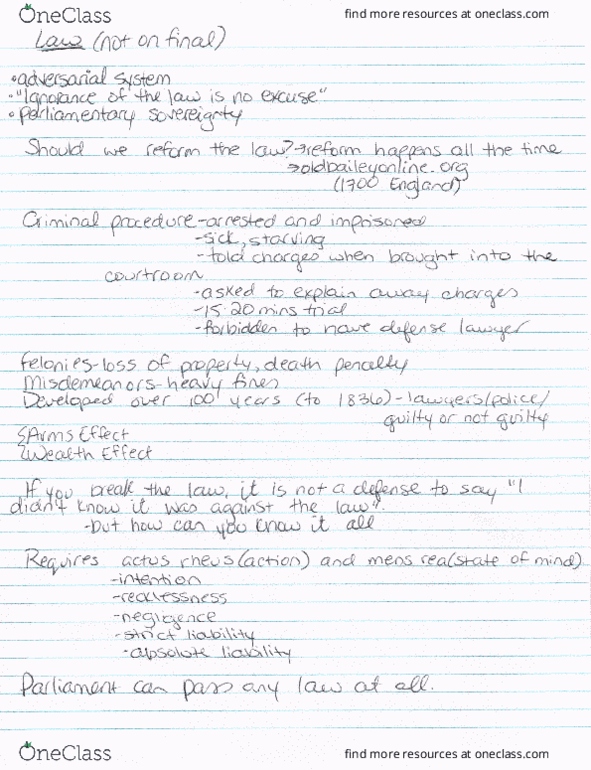 OneClass
find more resources at oneclass.com
Law (not on final)
•adversarial system
•"Ignorance of the law is no excuse"
•Parliamentary sovereignty
Should we reform the law?→reform happens all the time
→oldbaileyonline.org
(1700 England)
Criminal procedure-arrested and imprisoned
-sick, starving
-told charges when brought into the
courtroom
-asked to explain away charges
-15-20 mins trial
-forbidden to have defense lawyer
Felonies-loss of property, death penalty
Misdemeanors-heavy fines
Developed over 100 years (to 1836)-lawyers/police/
guilty or not guilty
{Arms Effect
{Wealth Effect
If you break the law, it is not a defense to say "I
didn't know it was against the law".
-but how can you know it all
Requires actus rheus(action) and mens rea(state of mind)
-intention
-recklessness
-negligence
-strict liability
-absolute liability
Parliament can pass any law at all.
OneClass
find more resources at oneclass.com